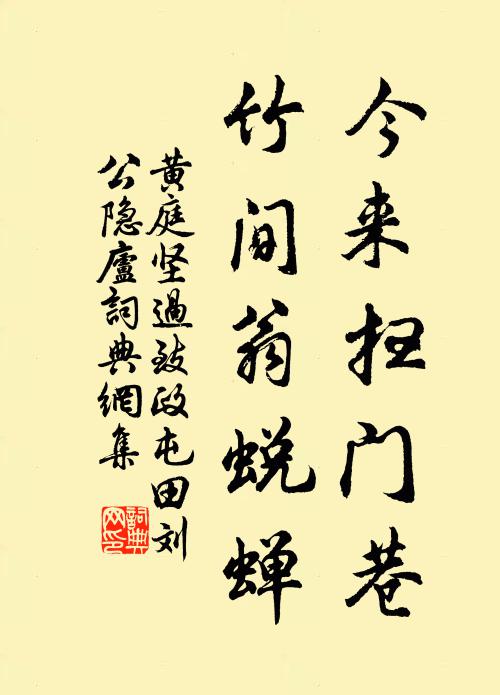 今来扫门巷
竹间翁蜕蝉
黄庭坚過致政屯田刘
公隐廬詞典網集
詞典网印